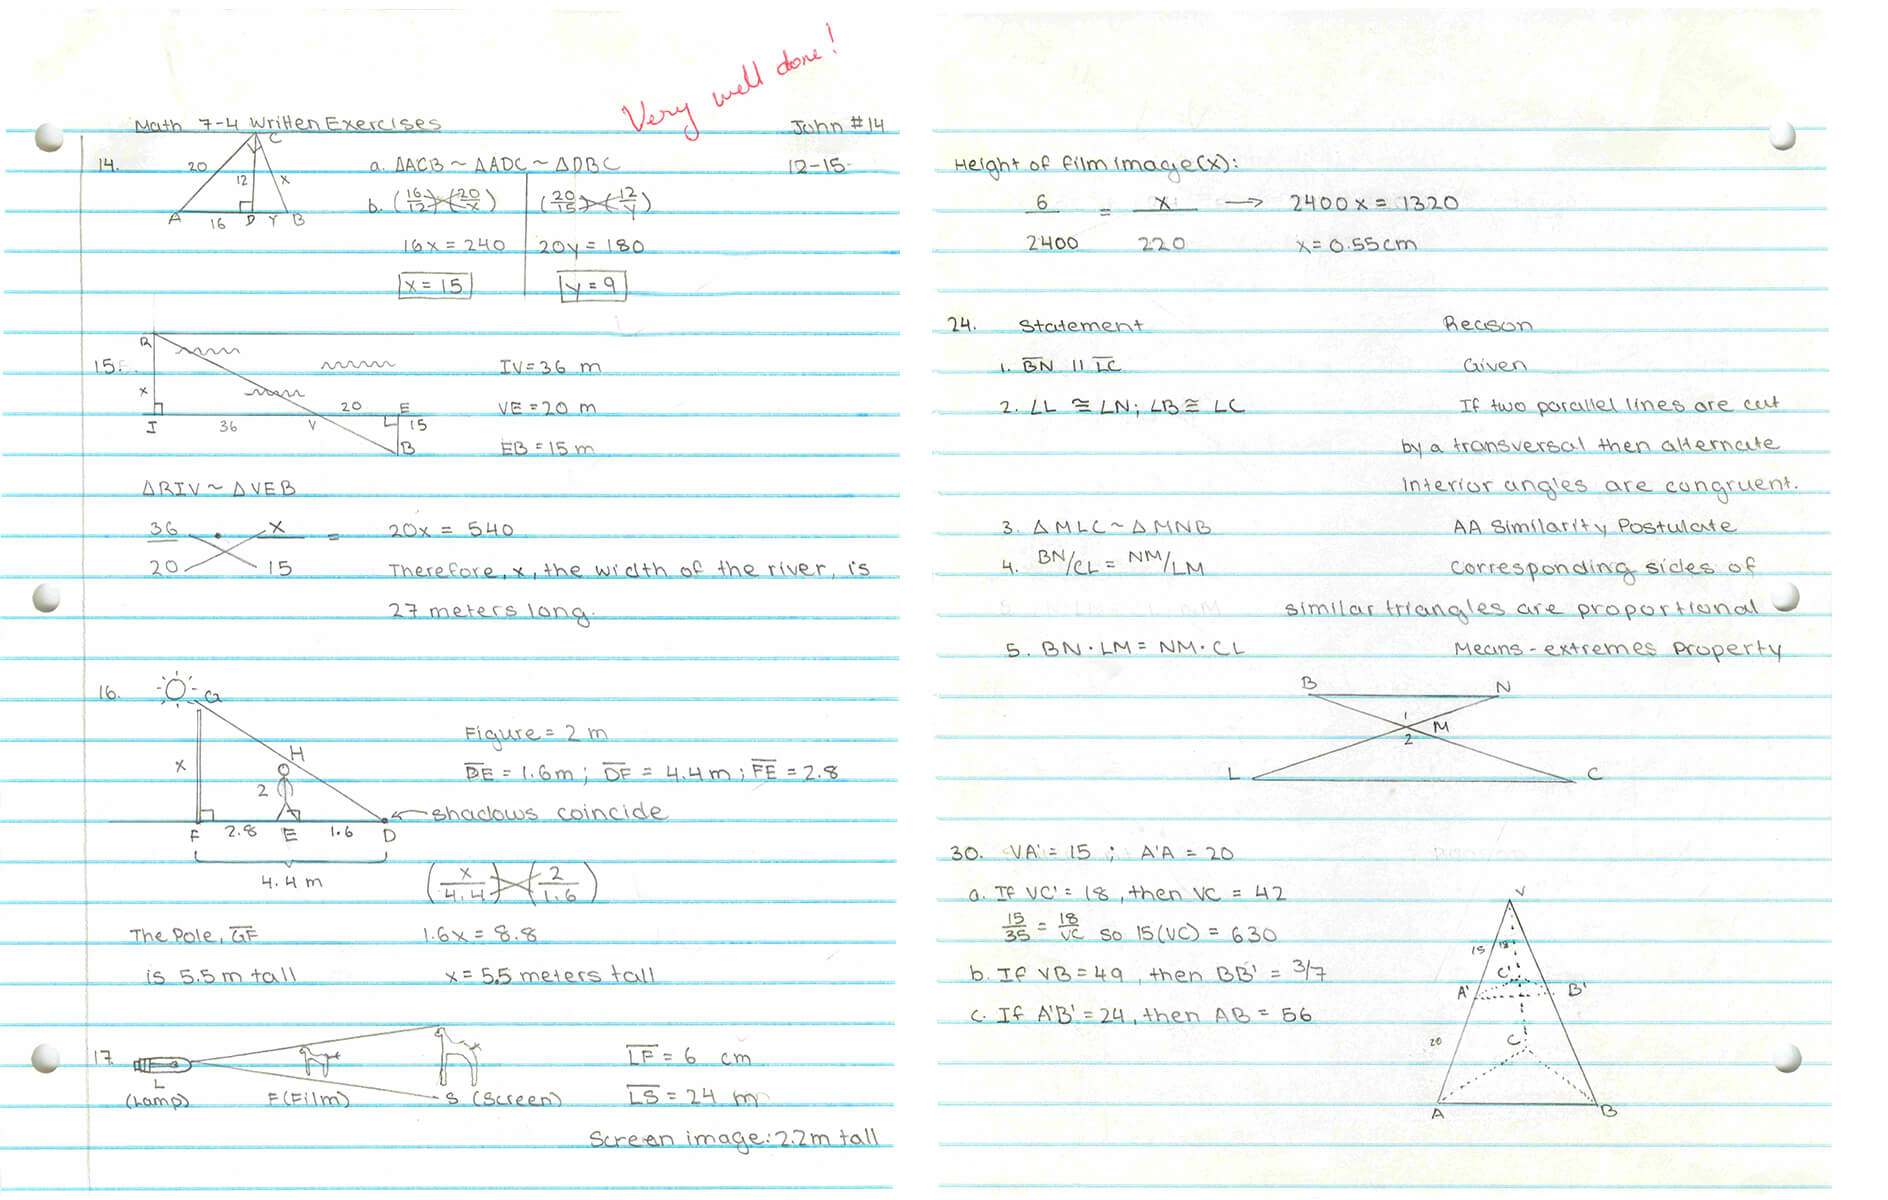 Very well done!
Math 7-4 Written Exercises
John #14
14.
C
20
12
x
A
16
D
Y
B
a. ΔACB ~ ΔADC ~ ΔDBC
12-15
b. (16/12) (20/x)
(20/15) (12/y)
16x = 240
20y = 180
x = 15
y = 9
15.
R
x
I
36
V
20
E
15
B
IV = 36 m
VE = 20 m
EB = 15 m
ΔRIV ~ ΔVEB
36/20 · x/15 =
20x = 540
Therefore, x, the width of the river, is
27 meters long.
16.
G
x
H
2
F
2.8
E
1.6
D
4.4 m
Figure = 2 m
DE = 1.6m ; DF = 4.4 m ; FE = 2.8
shadows coincide
(x/4.4) (2/1.6)
The Pole, GF
1.6x = 8.8
is 5.5 m tall
x = 5.5 meters tall
17.
L
(Lamp)
F (Film)
S (Screen)
LF = 6 cm
LS = 24 m
Screen image: 2.2m tall
Height of film image (x):
6/2400 = x/220 → 2400x = 1320
x = 0.55cm
24. Statement Reason
1. BN || LC Given
2. ∠L ≅ ∠N; ∠B ≅ ∠C If two parallel lines are cut
by a transversal then alternate
interior angles are congruent.
3. ΔMLC ~ ΔMNB AA Similarity Postulate
4. BN/CL = NM/LM Corresponding sides of
similar triangles are proportional
5. BN · LM = NM · CL Means-extremes Property
B
N
1
M
2
L
C
30. VA' = 15 ; A'A = 20
a. If VC' = 18, then VC = 42
15/35 = 18/VC so 15(VC) = 630
b. If VB = 49, then BB' = 3/7
c. If A'B' = 24, then AB = 56
V
15
18
C'
A'
B'
20
C
A
B